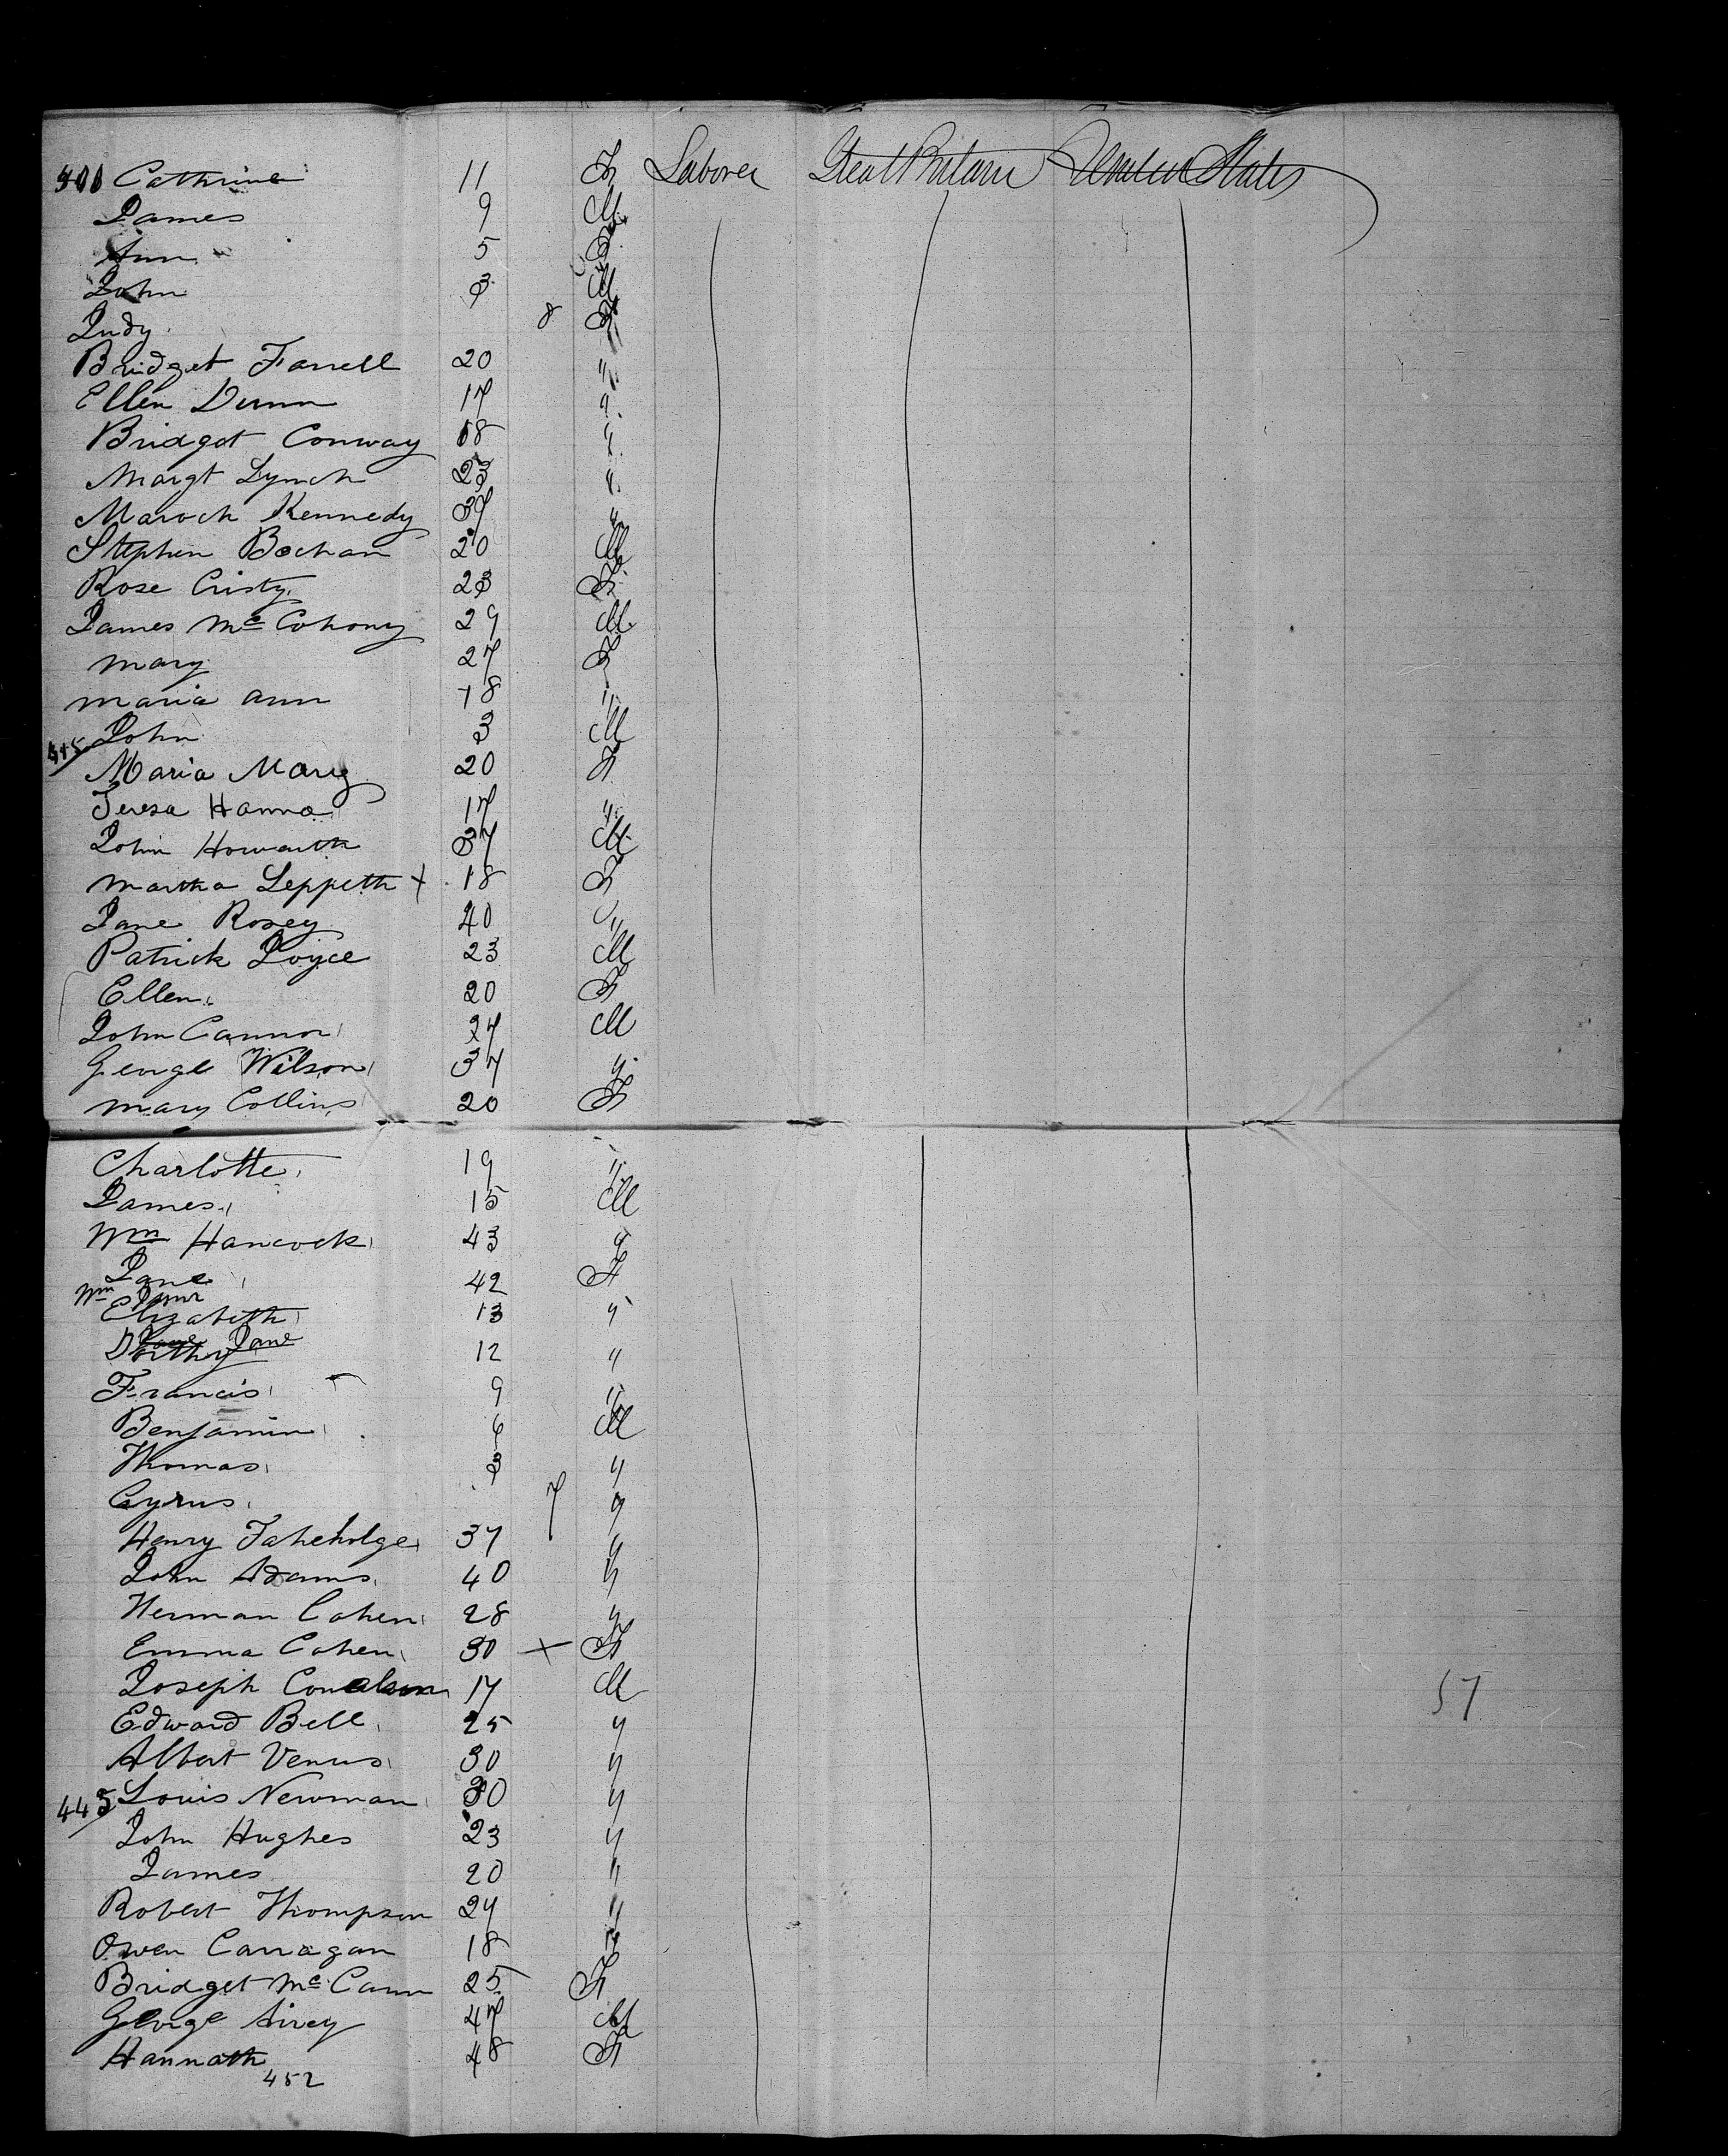 400 Cathrine 11 F Laborer Great Britain United States
James 9 M
Ann 5 F
John 3 M
Judy 8 F
Bridget Farrell 20 "
Ellen Dunn 17 "
Bridget Conway 18 "
Margt Lynch 23 "
Maroch Kennedy 37 "
Stephen Bochan 20 M
Rose Cristy 23 F
James McCohony 29 M
Mary 27 F
Maria Ann 18 "
John 3 M
415 Maria Mary 20 F
Teresa Hanna 17 "
John Howarth 37 M
Martha Leppeth + 18 F
Jane Roxey 40 "
Patrick Joyce 23 M
Ellen 20 F
John Cannon 27 M
George Wilson 37 "
Mary Collins 20 F
Charlotte 19 "
James 15 M
Wm Hancock 43 "
Jane 42 F
Wm
Elizabeth 13 "
Jane Jane
Dorthy 12 "
Francis 9 "
Benjamin 6 M
Thomas 3 "
Cyrus 7 "
Henry Faheholge 37 "
John Adams 40 "
Herman Cohen 28 "
Emma Cohen 30 + F
Joseph 17 M
57
Edward Bell 25 "
Albert Venus 30 "
445 Louis Newman 30 "
John Hughes 23 "
James 20 "
Robert Thompson 24 "
Owen Carragan 18 "
Bridget McCann 25 F
George Airey 47 M
Hannath 48 F
452